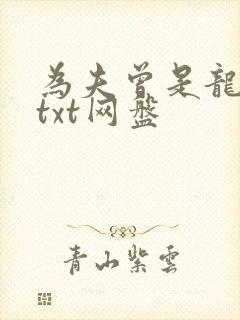 為夫曾是龍
txt网盘
青山紫雲